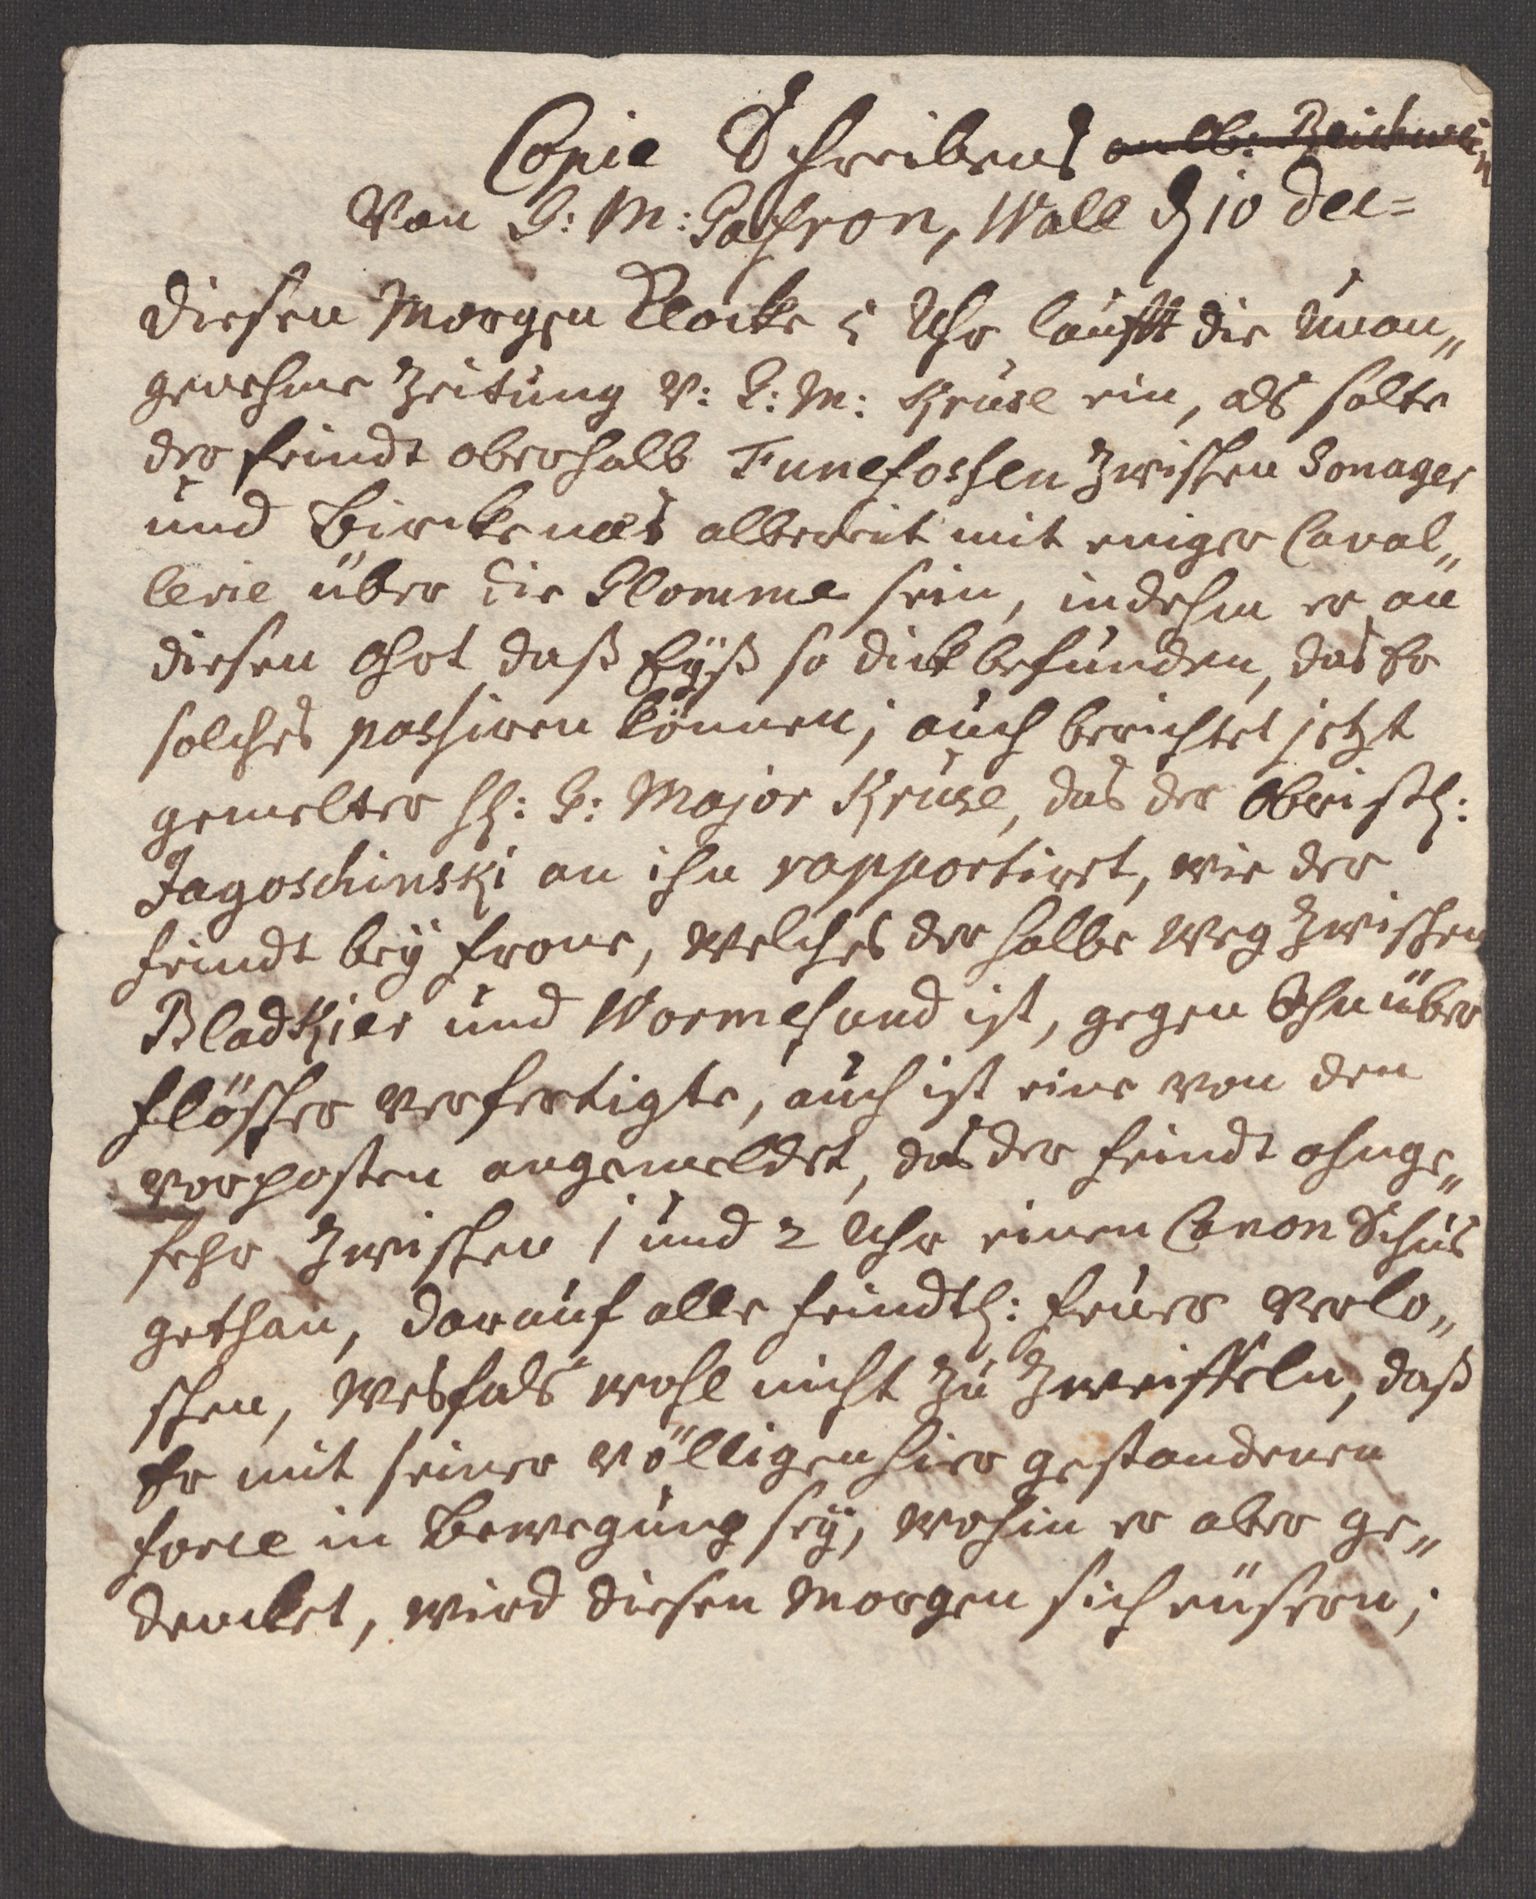 Copie Schreibens ~~an Ob: Reichwein~~
Von G: M: Gaffron, Wall d 10 dec=
diesen Morgen Klocke 5 Uhr laufft die unan„
genehme Zeitung v: G: M: Kruse ein, als solte
der feindt oberhalb Funefossen zwischen Sonager
und Birckenæs albereit mit einiger Caval„
lerie über die Glomme sein, indehm er an
diesen Ohrt daß Eyß so dick befunden, das Er
solches passiren können; auch berichtet jetzt
gemelter H: G: Major Kruse, das der Obristl:
Jagoschinski an ihn rapportiret, wie der
feindt bey Frone, welches der halbe Weg zwischen
Bladkier und Wormesund ist, gegen Ihn über
flösser verfertigte, auch ist eine von den
vorposten angemeldet, das der feindt ohnge„
fehr zwischen 1 und 2 Uhr einen Canon Schus
gethan, darauf alle feindtl: feuer verlo„
schen, wesfals wohl nicht zu zweiffeln, daß
Er mit seiner völligen hier gestandenen
force in bewegung sey, wohin er aber ge„
dencket, wird diesen Morgen sich eüsern;